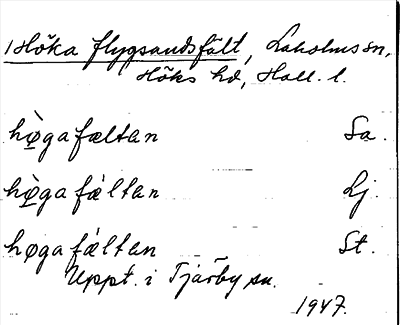 Höka flygsandsfält, Laholms sn,
Höks hd, Hall. l.
hø̀gafæltan Sa.
hø̀gafàltan Lj.
høgafàltan St.
Uppt. i Tjärby sn.
1947.